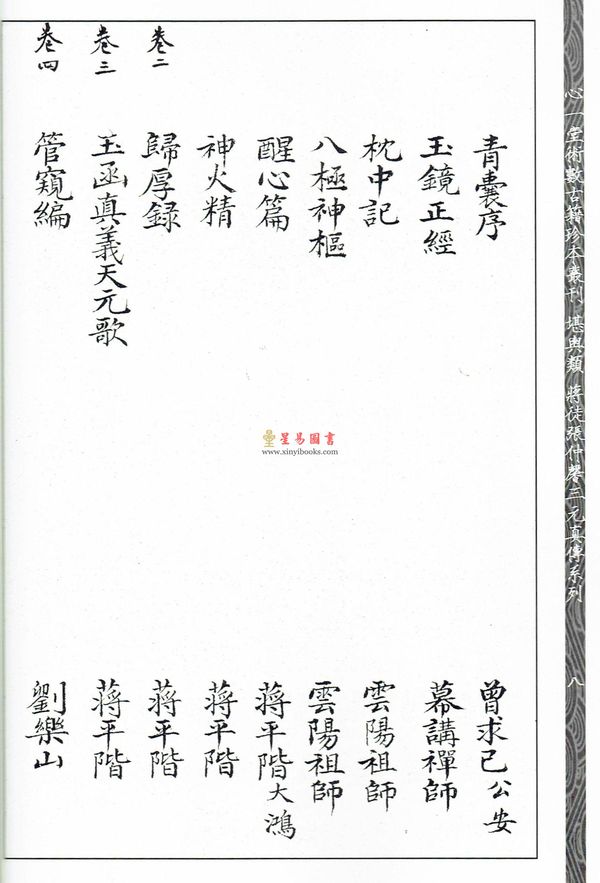 心一堂術數古籍珍本叢刊 堪輿類 蔣徒張仲馨三元真傳系列 八
青囊序 曾求己公安
玉鏡正經 幕講禪師
枕中記 雲陽祖師
八極神樞 雲陽祖師
醒心篇 蔣平階大鴻
神火精 蔣平階
卷二 歸厚録 蔣平階
卷三 玉函真義天元歌 蔣平階
卷四 管窺編 劉樂山
星易圖書
www.xinyibooks.com